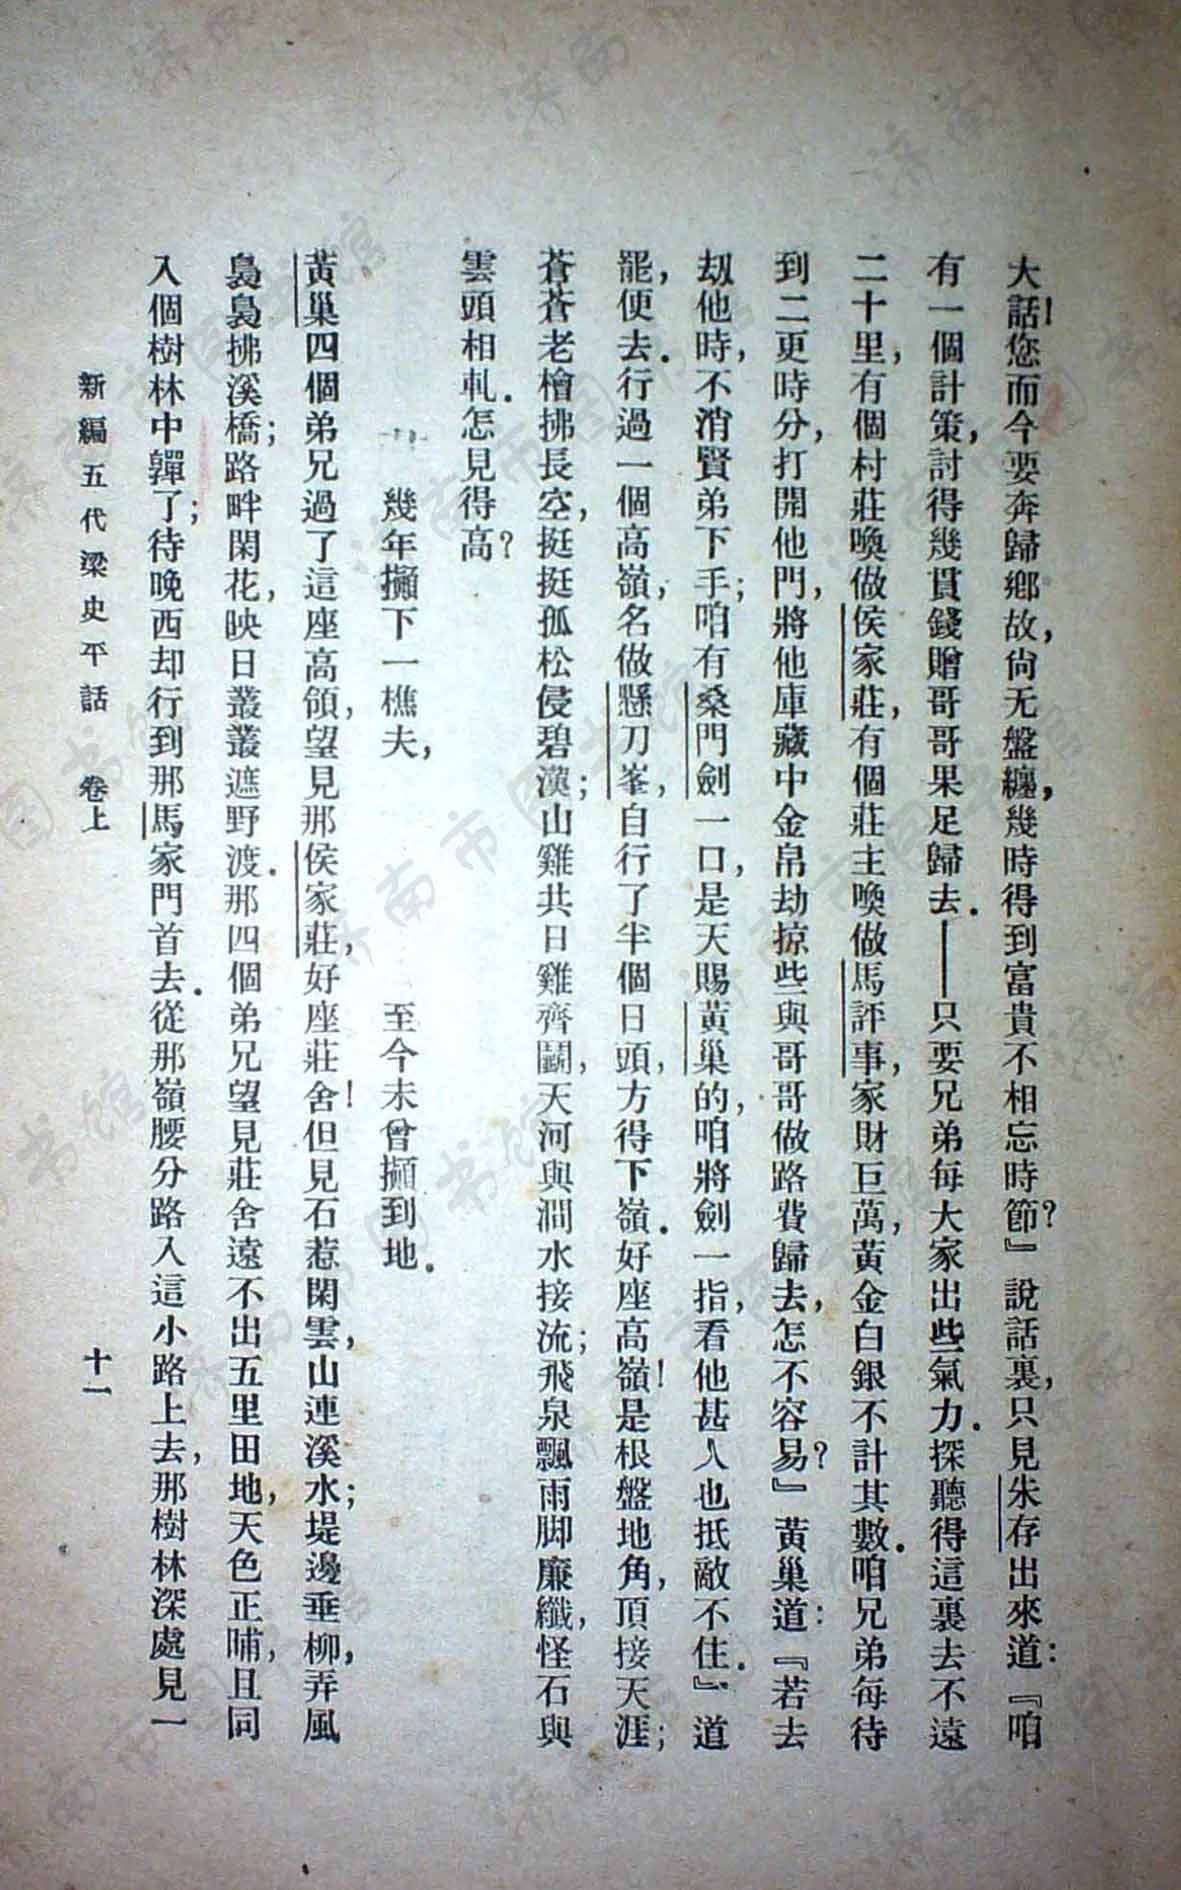 大話！您而今要奔歸鄉故，尙无盤纏，幾時得到富貴不相忘時節？』說話裏，只見朱存出來道：『咱
有一個計策，討得幾貫錢贈哥哥果足歸去．——只要兄弟每大家出些氣力．探聽得這裏去不遠
二十里，有個村莊喚做侯家莊，有個莊主喚做馬評事，家財巨萬，黃金白銀不計其數．咱兄弟每待
到二更時分，打開他門，將他庫藏中金帛劫掠些與哥哥做路費歸去，怎不容易？』黃巢道：『若去
劫他時，不消賢弟下手；咱有桑門劍一口，是天賜黃巢的，咱將劍一指，看他甚人也抵敵不住．』道
罷，便去．行過一個高嶺，名做懸刀峯，自行了半個日頭，方得下嶺．好座高嶺！是根盤地角，頂接天涯；
蒼蒼老檜拂長空，挺挺孤松侵碧漢；山雞共日雞齊鬭，天河與澗水接流；飛泉飄雨脚廉纖，怪石與
雲頭相軋．怎見得高？
幾年攧下一樵夫，　至今未曾攧到地．
黃巢四個弟兄過了這座高領，望見那侯家莊，好座莊舍！但見石惹閑雲，山連溪水；堤邊垂柳，弄風
裊裊拂溪橋；路畔閑花，映日叢叢遮野渡．那四個弟兄望見莊舍遠不出五里田地，天色正晡，且同
入個樹林中嚲了；待晚西却行到那馬家門首去．從那嶺腰分路入這小路上去，那樹林深處見一
新編五代梁史平話　卷上　十一
濟南市图书馆